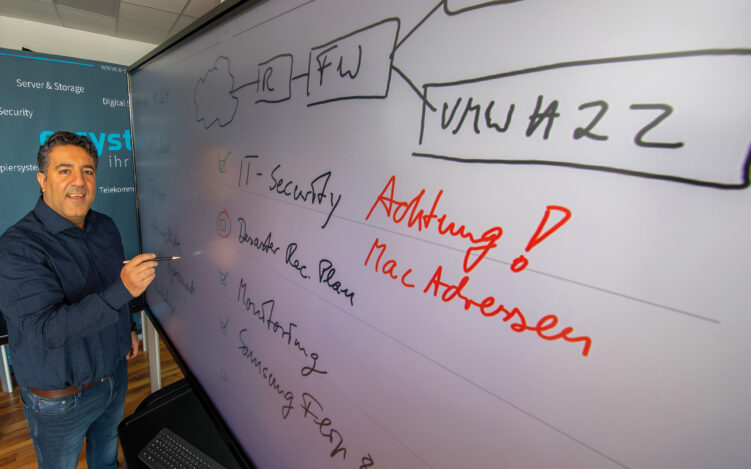 www.e-s
Server & Storage
Digital S
Security
esyst
ihr
Telekomm
R
FW
VMWH22
IT-Security
Achtung!
Mac Adressen
Desaster Rec. Plan
Monitoring
Samsung Fern